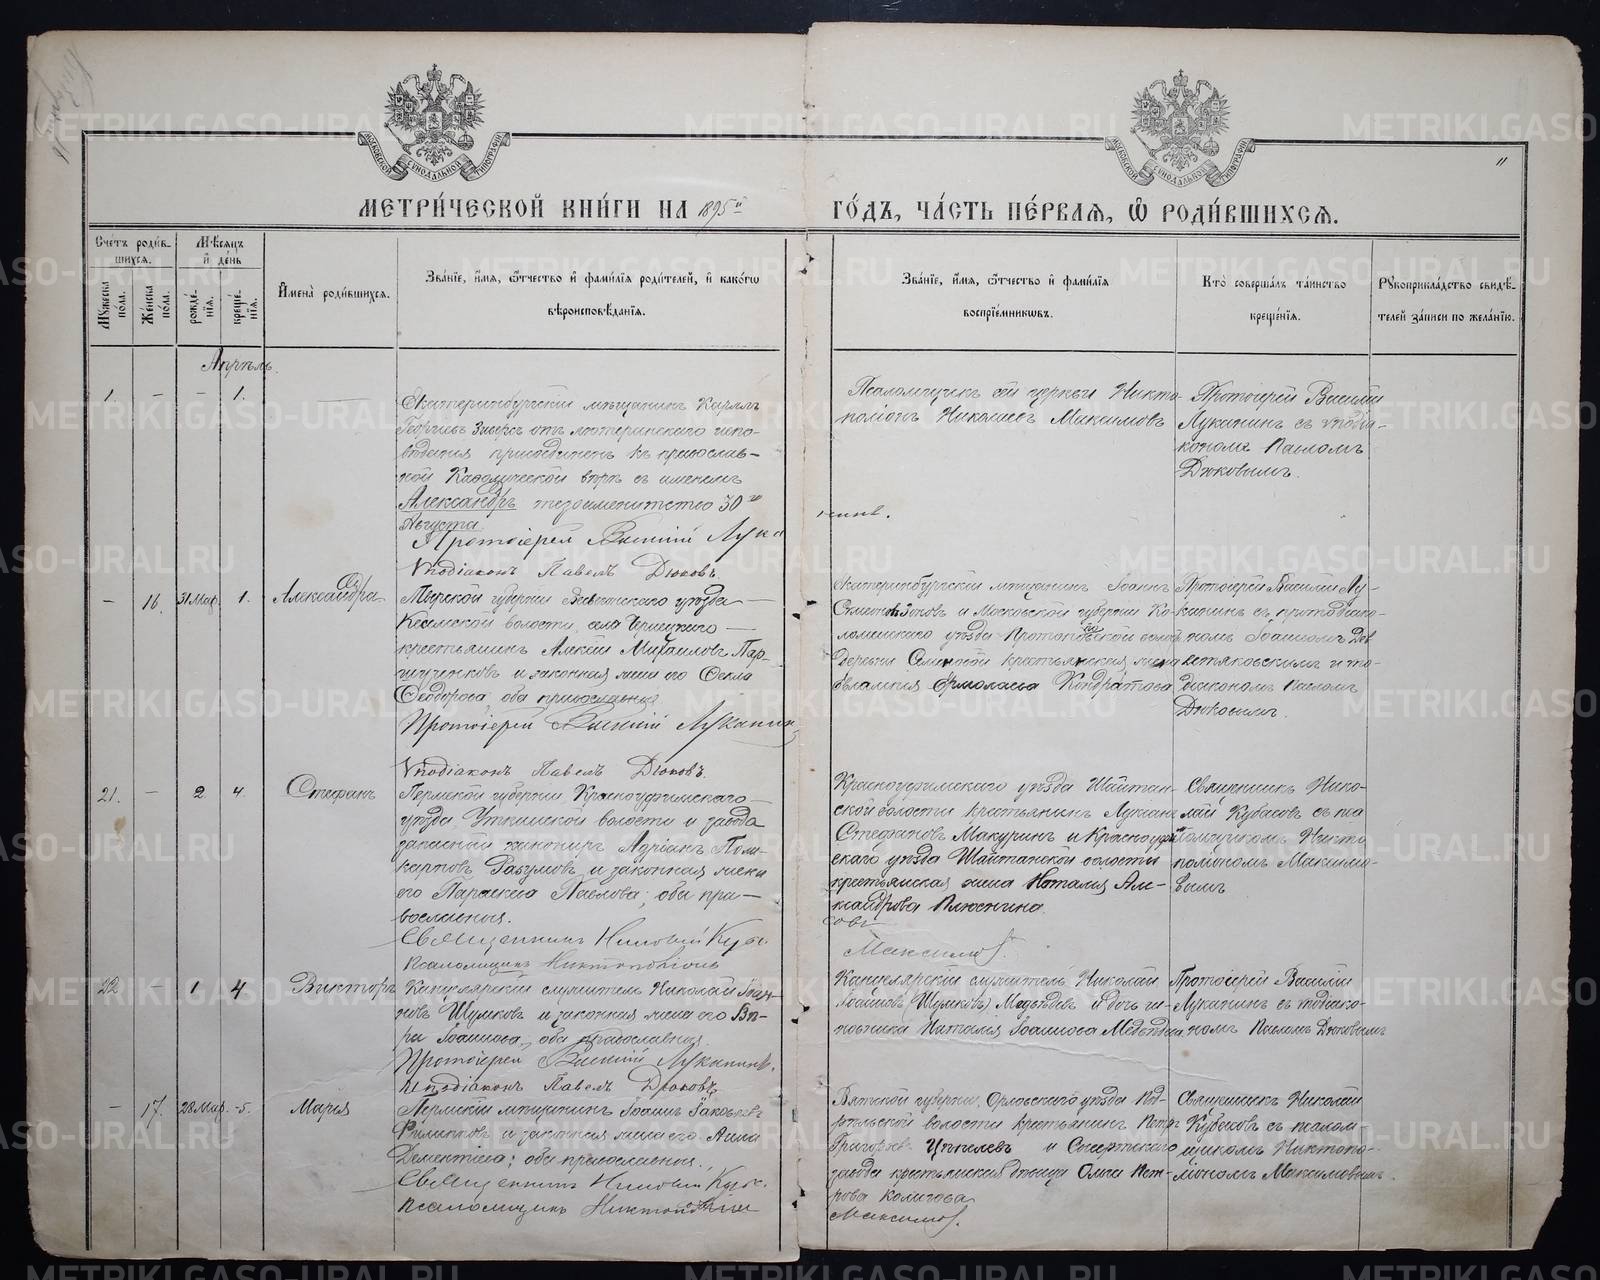 МЕТРИ́ЧЕСКОЙ КНИ́ГИ НА 1895й ГО́ДЪ, ЧА́СТЬ ПЕ́РВАЯ, Ѡ РОДИ́ВШИХСЯ.
МОСКОВСКОЙ СѴНОДАЛЬНОЙ ТИПОГРАФІИ
МОСКОВСКОЙ СѴНОДАЛЬНОЙ ТИПОГРАФІИ
11
Сче́тъ роди́в-
шихся.
Му́жеска пола.
Же́нска пола.
Мѣ́сяцъ
и҆ де́нь
рожде́нїя.
креще́нїя.
И҆мена̀ роди́вшихся.
Зва́нїе, и҆́мя, ѻ҆́тчество и҆ фами́лїя роди́телей, и҆ како́гѡ
вѣроисповѣ́данїя.
Зва́нїе, и҆́мя, ѻ҆́тчество и҆ фами́лїя
воспрїе́мникѡвъ.
Кто̀ соверша́лъ та́инство
креще́нїя.
Рꙋкоприкла́дство свидѣ́-
телей за́писи по жела́нїю.
Апрѣль.
1. – – 1.
Екатеринбургскій мѣщанинъ Карлъ
Георгіевъ отъ лютеранскаго испо-
вѣданія присоединенъ къ православ-
ной Каѳолической вѣрѣ съ именемъ
Александръ тезоименитство 30го
Августа.
Протоіерей Василій Лука
нинъ.
Ѵподіаконъ Павелъ Дюковъ.
Псаломщикъ сей церкви Никто-
поліонъ Николаевъ Максимовъ
Протоіерей Василій
Луканинъ съ ѵподіа-
кономъ Павломъ
Дюковымъ.
– 16. 31 Мар. 1. Александра
губерніи уѣзда
волости, села
крестьянинъ Алексій Михаиловъ Пар-
и законная жена его Ѳекла
Ѳеодорова; оба православные
Протоіерей Василій Луканинъ
Ѵподіаконъ Павелъ Дюковъ.
Екатеринбургскій мѣщанинъ Іоаннъ
и Московской губерніи Ко-
ломенскаго уѣзда
деревни крестьянская жена
Евлампія Ермолаева Кондратова
Протоіерей Василій Лу-
канинъ съ протодіако-
номъ Іоанномъ
и по-
діакономъ Павломъ
Дюковымъ.
21. – 2 4. Стефанъ
Пермской губерніи Красноуфимскаго
уѣзда, Уткинской волости и завода
запасный канониръ Адріанъ Поли-
карповъ и законная жена
его Параскева Павлова; оба пра-
вославныя.
Священникъ Николай Куба-
совъ
Псаломщикъ Никтополіонъ
Максимовъ.
Красноуфимскаго уѣзда Шайтан-
ской волости крестьянинъ Лукіанъ
Стефановъ Макуринъ и Красноуфим-
скаго уѣзда Шайтанской волости
крестьянская жена Наталія Але-
ксандрова Плюснина.
Священникъ Нико-
лай Кубасовъ съ пса-
ломщикомъ Никто-
поліономъ Максимо-
вымъ
22. – 1 4 Викторъ
Канцелярскій служитель Николай Іоан-
новъ Шумковъ и законная жена его Вѣ-
ра Іоаннова, оба православныя.
Протоіерей Василій Луканинъ.
Ѵподіаконъ Павелъ Дюковъ
Канцелярскій служитель Николай
Іоанновъ (Шумковъ) Медвѣдевъ и дочь чи-
новника Наталія Іоаннова Медвѣдева
Протоіерей Василій
Луканинъ съ подіако-
номъ Павломъ Дюковымъ
– 17. 28 Мар. 5. Марія
Пермскій мѣщанинъ Іоаннъ Іаковлевъ
Филипповъ и законная жена его Анна
Дементіева; оба православныя.
Священникъ Николай Куба-
Псаломщикъ Никтополіонъ
Максимовъ.
Вятской губерніи, Орловскаго уѣзда Под-
рѣльской волости крестьянинъ Петръ
Григорьевъ и Сысертскаго
завода крестьянская дѣвица Ольга Пет-
рова
Священникъ Николай
Кубасовъ съ псалом-
щикомъ Никтопо-
ліономъ Максимовымъ.
METRIKI.GASO-URAL.RU